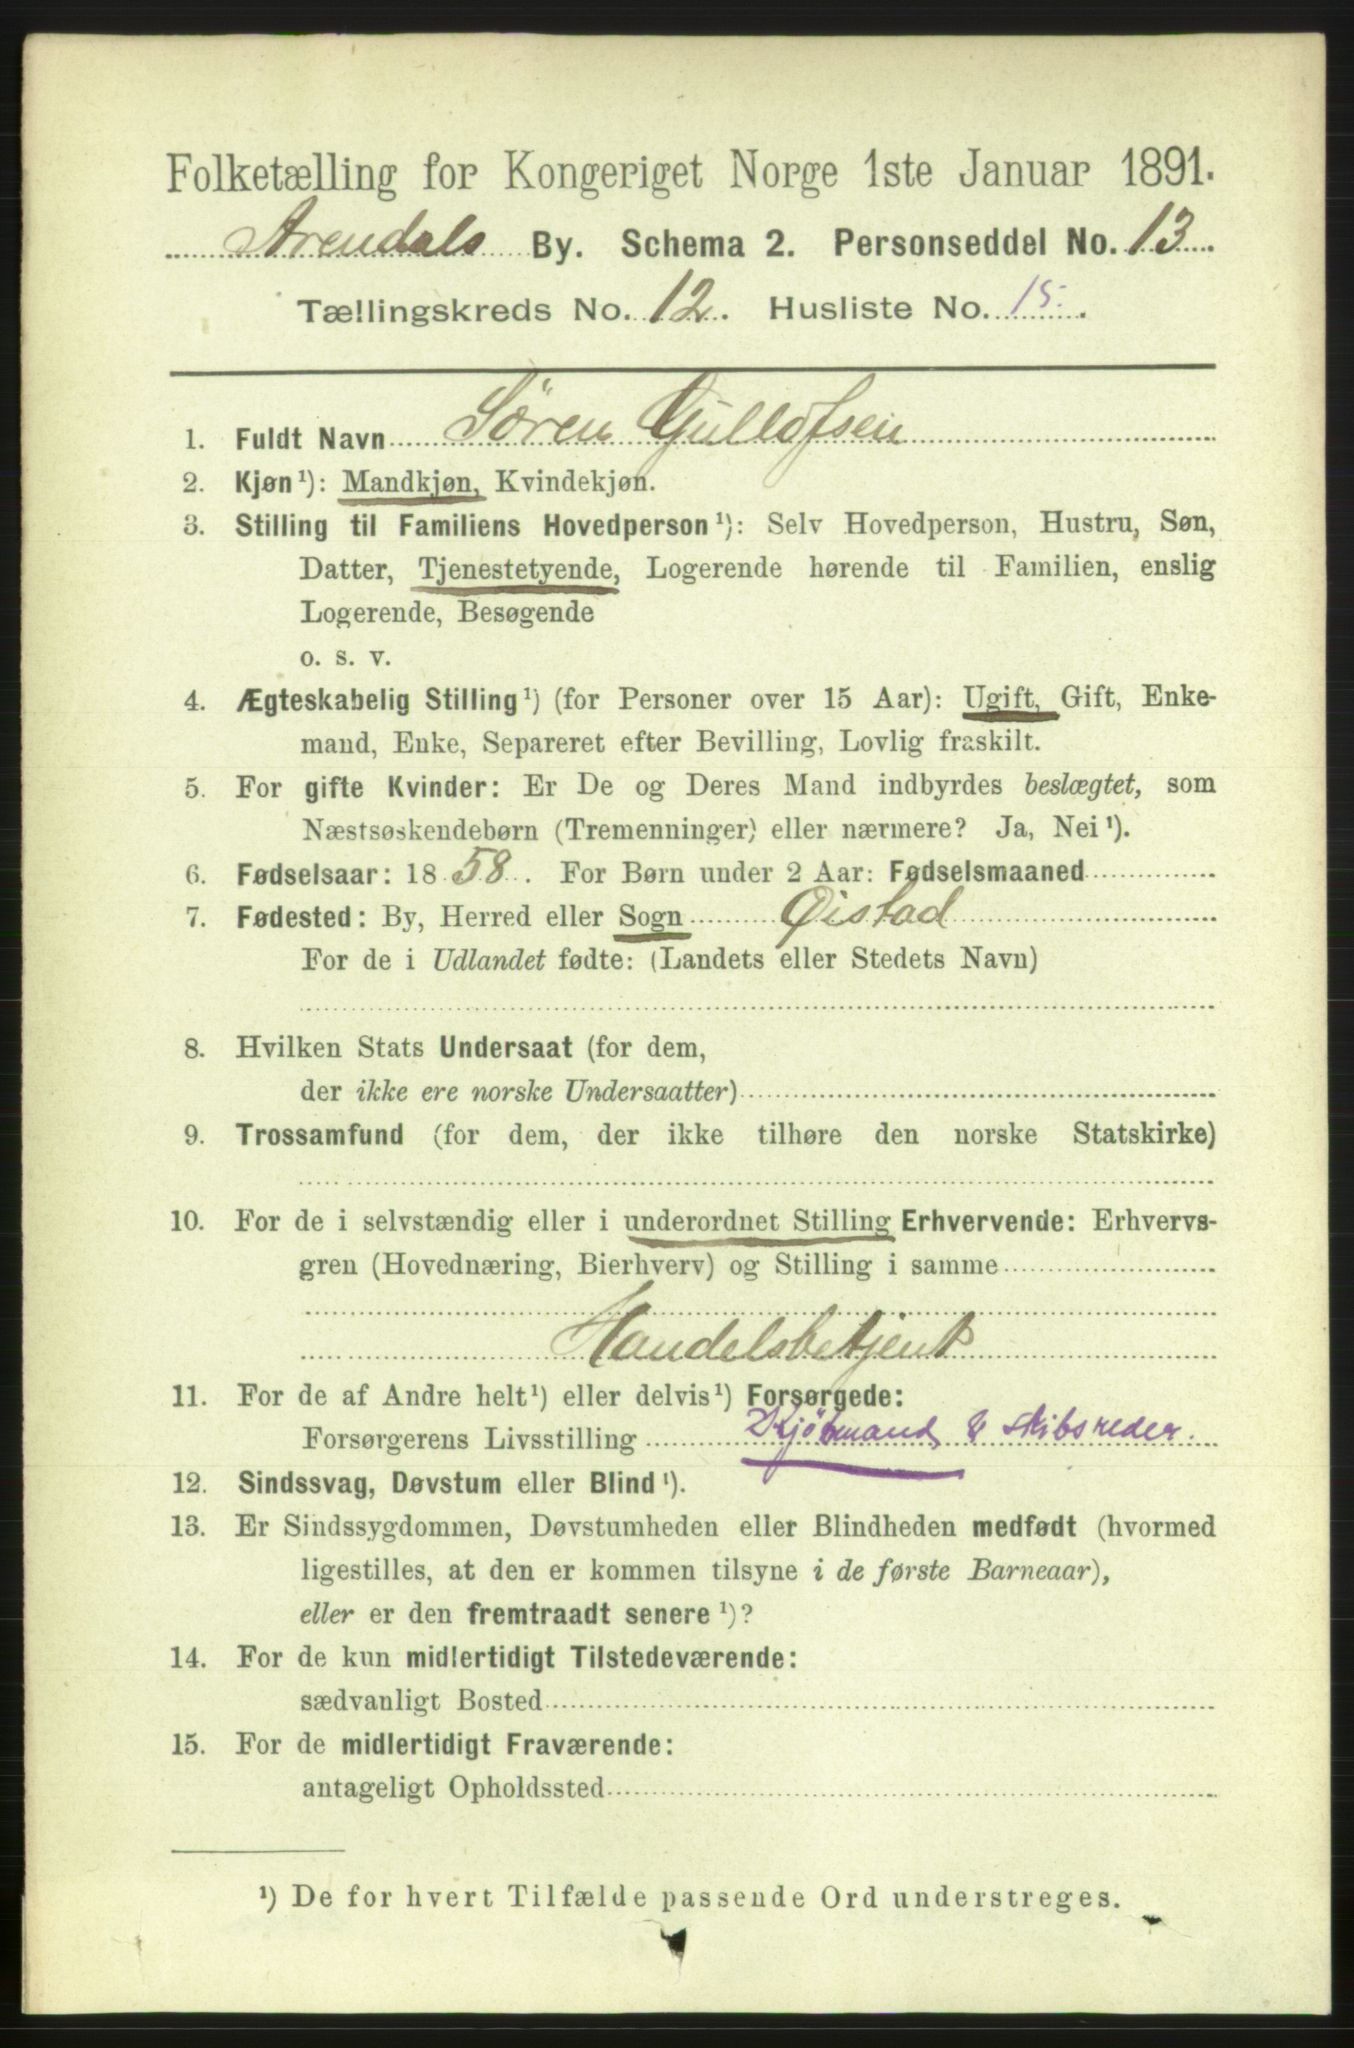 Folketælling for Kongeriget Norge 1ste Januar 1891.
Arendals By. Schema 2. Personseddel No. 13
Tællingskreds No. 12. Husliste No. 15.
1. Fuldt Navn Søren Gullofsen
2. Kjøn ¹): Mandkjøn, Kvindekjøn.
3. Stilling til Familiens Hovedperson ¹): Selv Hovedperson, Hustru, Søn,
Datter, Tjenestetyende, Logerende hørende til Familien, enslig
Logerende, Besøgende
o. s. v.
4. Ægteskabelig Stilling ¹) (for Personer over 15 Aar): Ugift, Gift, Enke-
mand, Enke, Separeret efter Bevilling, Lovlig fraskilt.
5. For gifte Kvinder: Er De og Deres Mand indbyrdes beslægtet, som
Næstsøskendebørn (Tremenninger) eller nærmere? Ja, Nei ¹).
6. Fødselsaar: 1858. For Børn under 2 Aar: Fødselsmaaned
7. Fødested: By, Herred eller Sogn Øistad
For de i Udlandet fødte: (Landets eller Stedets Navn)
8. Hvilken Stats Undersaat (for dem,
der ikke ere norske Undersaatter)
9. Trossamfund (for dem, der ikke tilhøre den norske Statskirke)
10. For de i selvstændig eller i underordnet Stilling Erhvervende: Erhvervs-
gren (Hovednæring, Bierhverv) og Stilling i samme
Handelsbetjent
11. For de af Andre helt ¹) eller delvis ¹) Forsørgede:
Forsørgerens Livsstilling Kjöbmand & Skibsreder.
12. Sindssvag, Døvstum eller Blind ¹).
13. Er Sindssygdommen, Døvstumheden eller Blindheden medfødt (hvormed
ligestilles, at den er kommen tilsyne i de første Barneaar),
eller er den fremtraadt senere ¹)?
14. For de kun midlertidigt Tilstedeværende:
sædvanligt Bosted
15. For de midlertidigt Fraværende:
antageligt Opholdssted
¹) De for hvert Tilfælde passende Ord understreges.